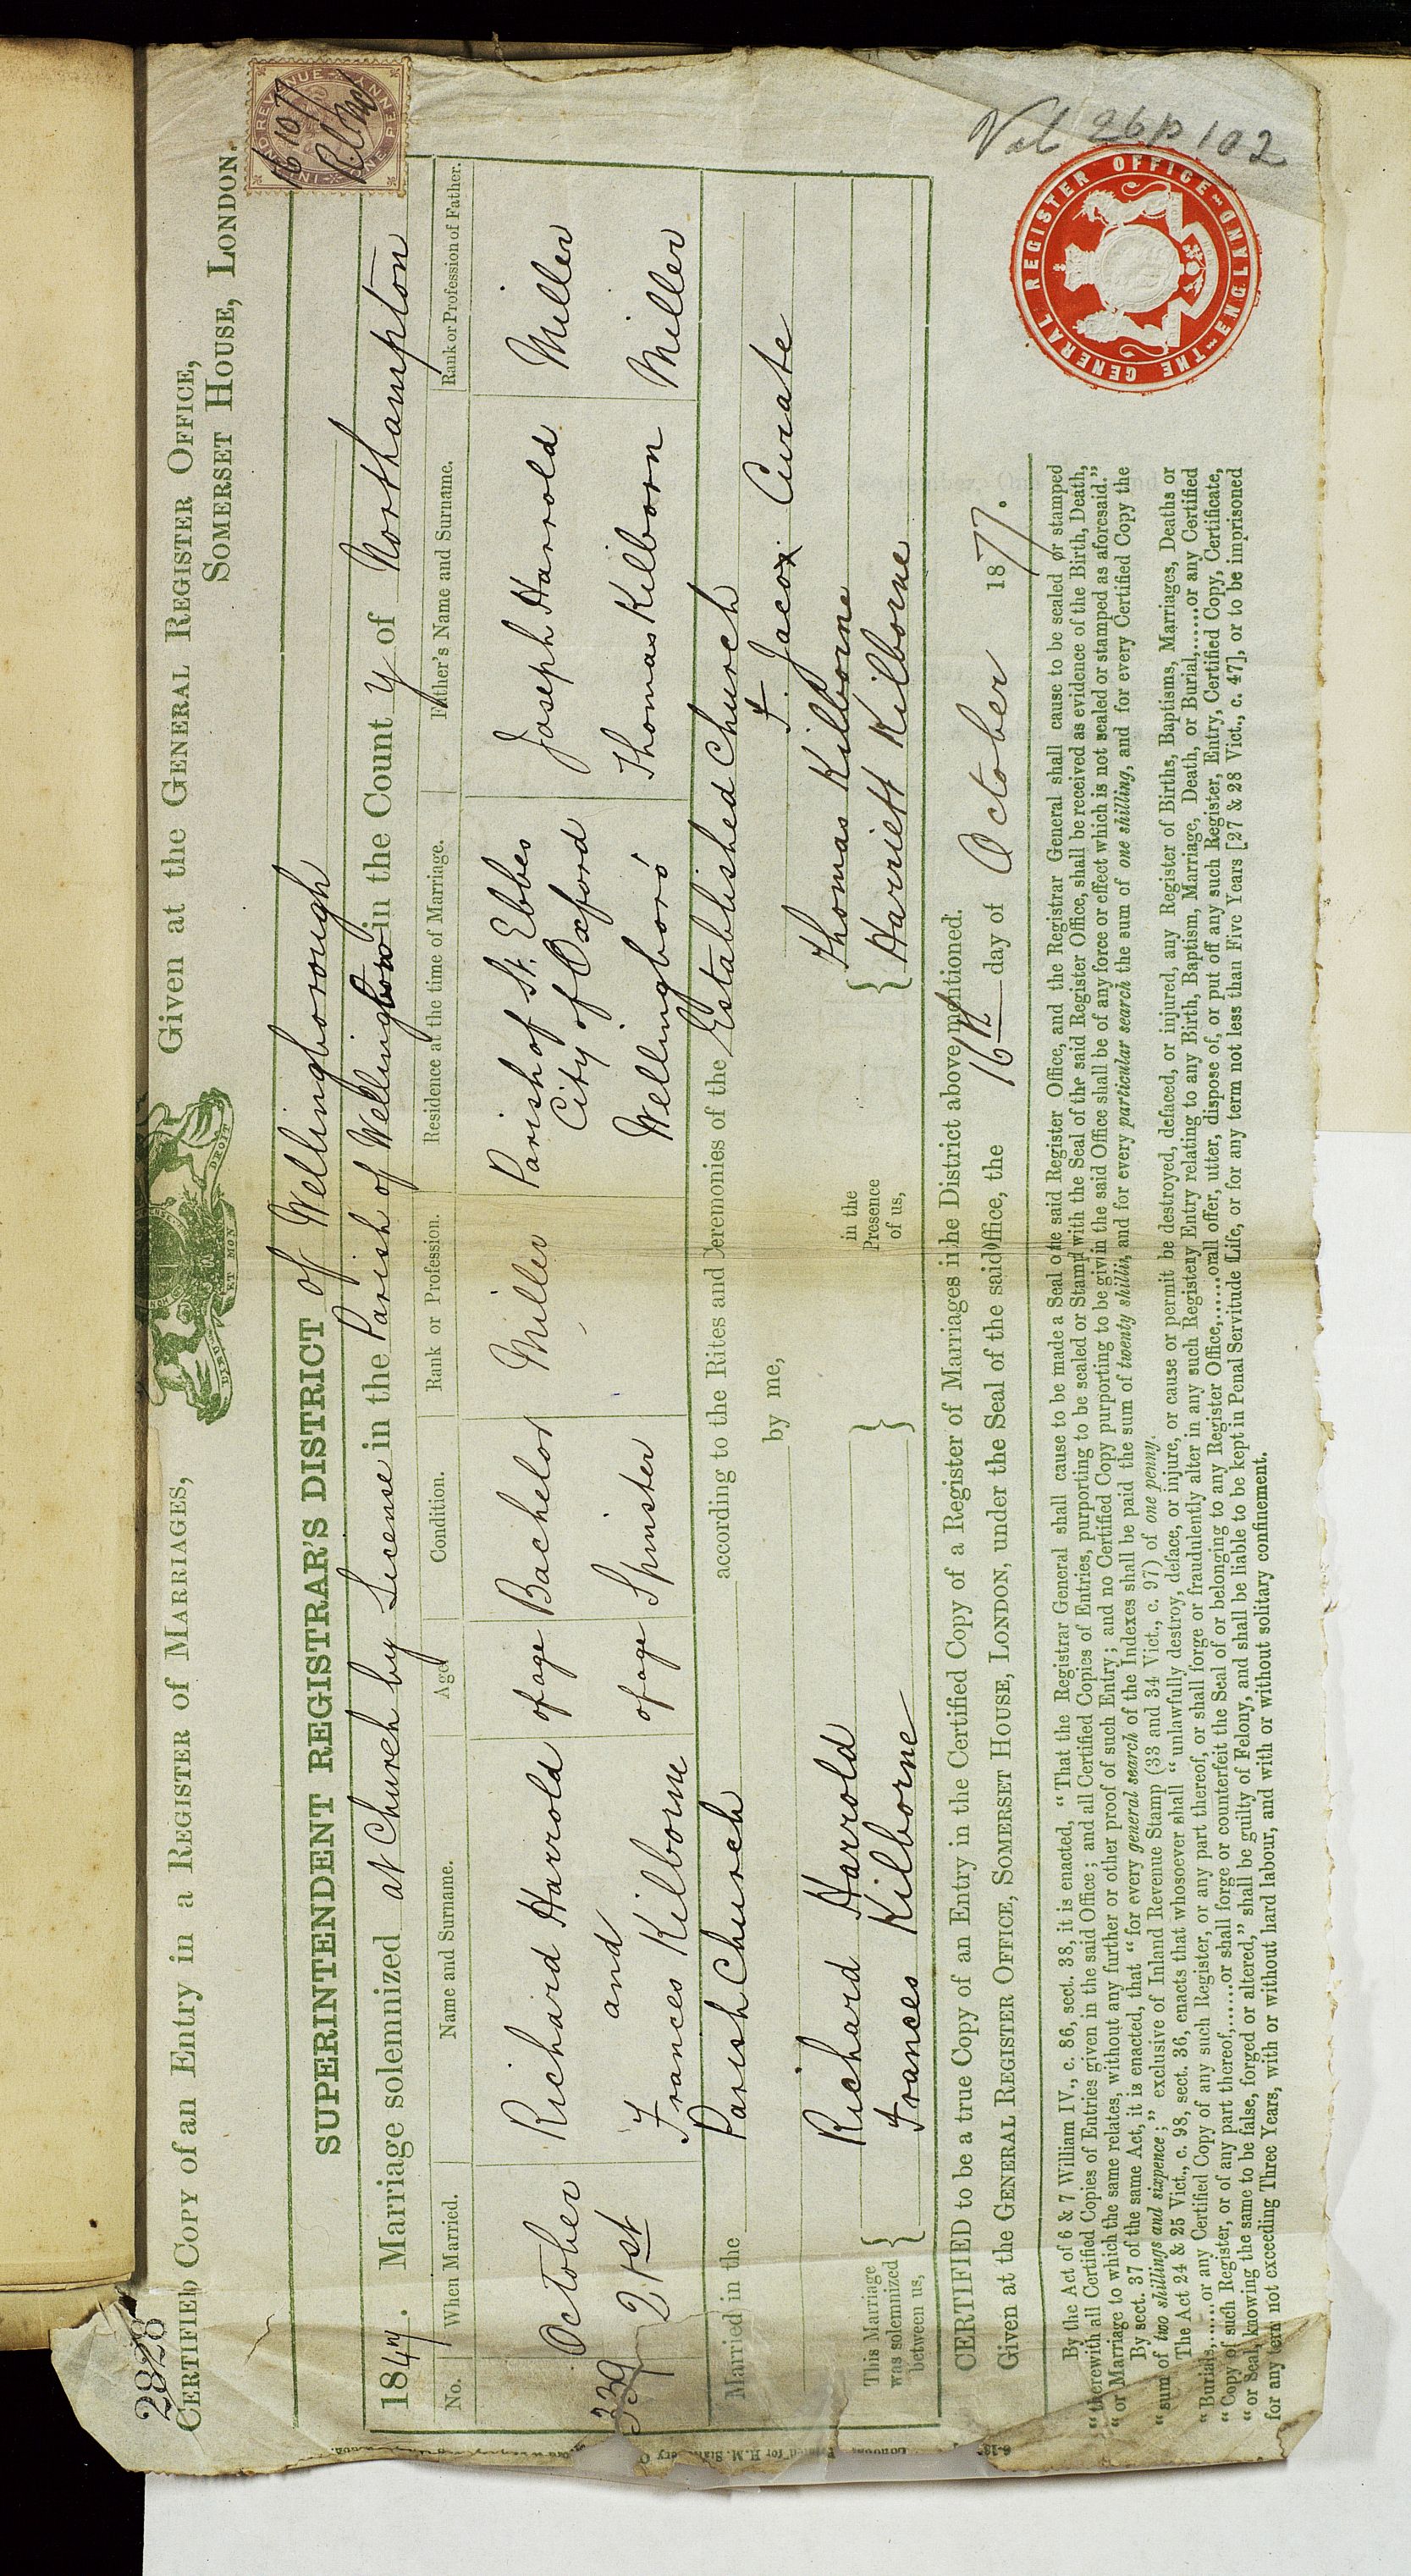 2828
CERTIFIED COPY of an Entry in a REGISTER OF MARRIAGES, Given at the GENERAL REGISTER OFFICE,
SOMERSET HOUSE, LONDON.
DIEU ET MON DROIT
INLAND REVENUE ONE PENNY
16 10 77
SUPERINTENDENT REGISTRAR'S DISTRICT of Wellingborough
1847. Marriage solemnized at Church by License in the Parish of Wellingboro' in the County of Northampton
No. When Married. Name and Surname. Age Condition. Rank or Profession. Residence at the time of Marriage. Father's Name and Surname. Rank or Profession of Father.
339 October 21st Richard Harrold of age Bachelor Miller Parish of St. Ebbes City of Oxford Joseph Harrold Miller
and
Frances Kilborne of age Spinster Wellingboro' Thomas Kilborn Miller
Married in the Parish Church according to the Rites and Ceremonies of the Established Church
by me, F. Jacox Curate
This Marriage was solemnized between us, { Richard Harrold } in the Presence of us, { Thomas Kilborne
Frances Kilborne Harriett Kilborne
CERTIFIED to be a true Copy of an Entry in the Certified Copy of a Register of Marriages in the District above mentioned.
Given at the GENERAL REGISTER OFFICE, SOMERSET HOUSE, LONDON, under the Seal of the said Office, the 16th day of October 1877.
By the Act of 6 & 7 William IV., c. 86, sect. 38, it is enacted, "That the Registrar General shall cause to be made a Seal of the said Register Office, and the Registrar General shall cause to be sealed or stamped
"therewith all Certified Copies of Entries given in the said Office; and all Certified Copies of Entries, purporting to be sealed or Stamp with the Seal of the said Register Office, shall be received as evidence of the Birth, Death,
"or Marriage to which the same relates, without any further or other proof of such Entry; and no Certified Copy purporting to be given in the said Office shall be of any force or effect which is not sealed or stamped as aforesaid."
By sect. 37 of the same Act, it is enacted, that "for every general search of the Indexes shall be paid the sum of twenty shillings, and for every particular search the sum of one shilling, and for every Certified Copy the
"sum of two shillings and sixpence;" exclusive of Inland Revenue Stamp (33 and 34 Vict., c. 97) of one penny.
The Act 24 & 25 Vict., c. 98, sect. 36, enacts that whosoever shall "unlawfully destroy, deface, or injure, or cause or permit be destroyed, defaced, or injured, any Register of Births, Baptisms, Marriages, Deaths or
"Burials,......or any Certified Copy of any such Register, or any part thereof, or shall forge or fraudulently alter in any such Register any Entry relating to any Birth, Baptism, Marriage, Death, or Burial,......or any Certified
"Copy of such Register, or of any part thereof,......or shall forge or counterfeit the Seal of or belonging to any Register Office,......or shall offer, utter, dispose of, or put off any such Register, Entry, Certified Copy, Certificate,
"or Seal, knowing the same to be false, forged or altered," shall be guilty of Felony, and shall be liable to be kept in Penal Servitude for Life, or for any term not less than Five Years [27 & 28 Vict., c. 47], or to be imprisoned
for any term not exceeding Three Years, with or without hard labour, and with or without solitary confinement.
THE GENERAL REGISTER OFFICE ENGLAND
Vol 26 p 102